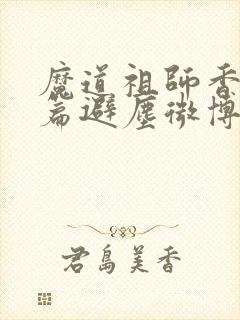 魔道祖師香
篇避塵微博
君島美香